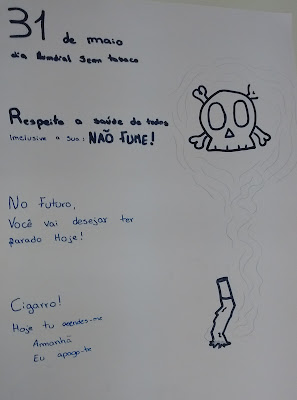 31 de maio
dia Mundial Sem tabaco
Respeita a saúde de todos
Inclusive a sua: NÃO FUME!
No Futuro,
Você vai desejar ter
parado Hoje!
Cigarro!
Hoje tu acendes-me
Amanhã
Eu apago-te